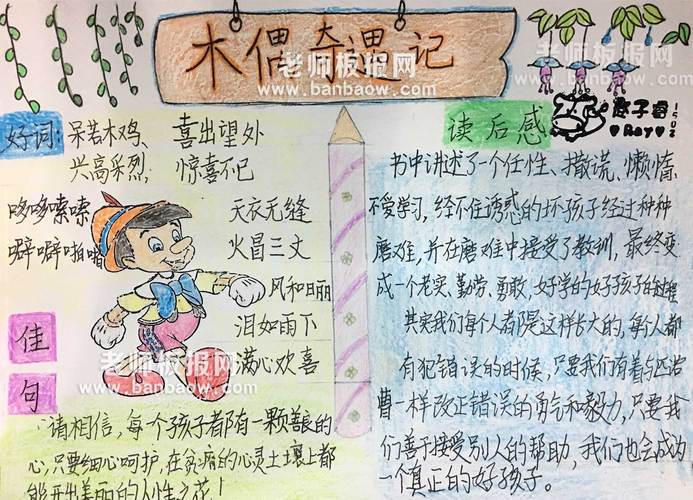 木偶奇遇记
老师板报网
www.banbaow.com
好词:
呆若木鸡、 喜出望外
兴高采烈、 惊喜不已
哆哆嗦嗦
噼噼啪啪
天衣无缝
火冒三丈
风和日丽
泪如雨下
满心欢喜
佳
句
请相信,每个孩子都有一颗善良的
心,只要细心呵护,在贫瘠的心灵土壤上都
能开出美丽的人性之花!
子睿
1502
Ray
读后感
书中讲述了一个任性、撒谎、懒惰、
不爱学习,经不住诱惑的坏孩子经过种种
磨难,并在磨难中接受了教训,最终变
成一个老实、勤劳、勇敢,好学的好孩子的过程
其实我们每个人都是这样长大的,每个人都
有犯错误的时候,只要我们有着与匹诺
曹一样改正错误的勇气和毅力,只要我
们善于接受别人的帮助,我们也会成为
一个真正的好孩子。
老师板报网
www.banbaow.com
老师板报网
www.banbaow.com
老师板报网
www.banbaow.com